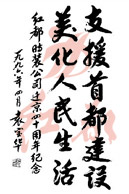 支援首都建设
美化人民生活
红都时装公司迁京四十周年纪念
一九九六年四月 袁宝华